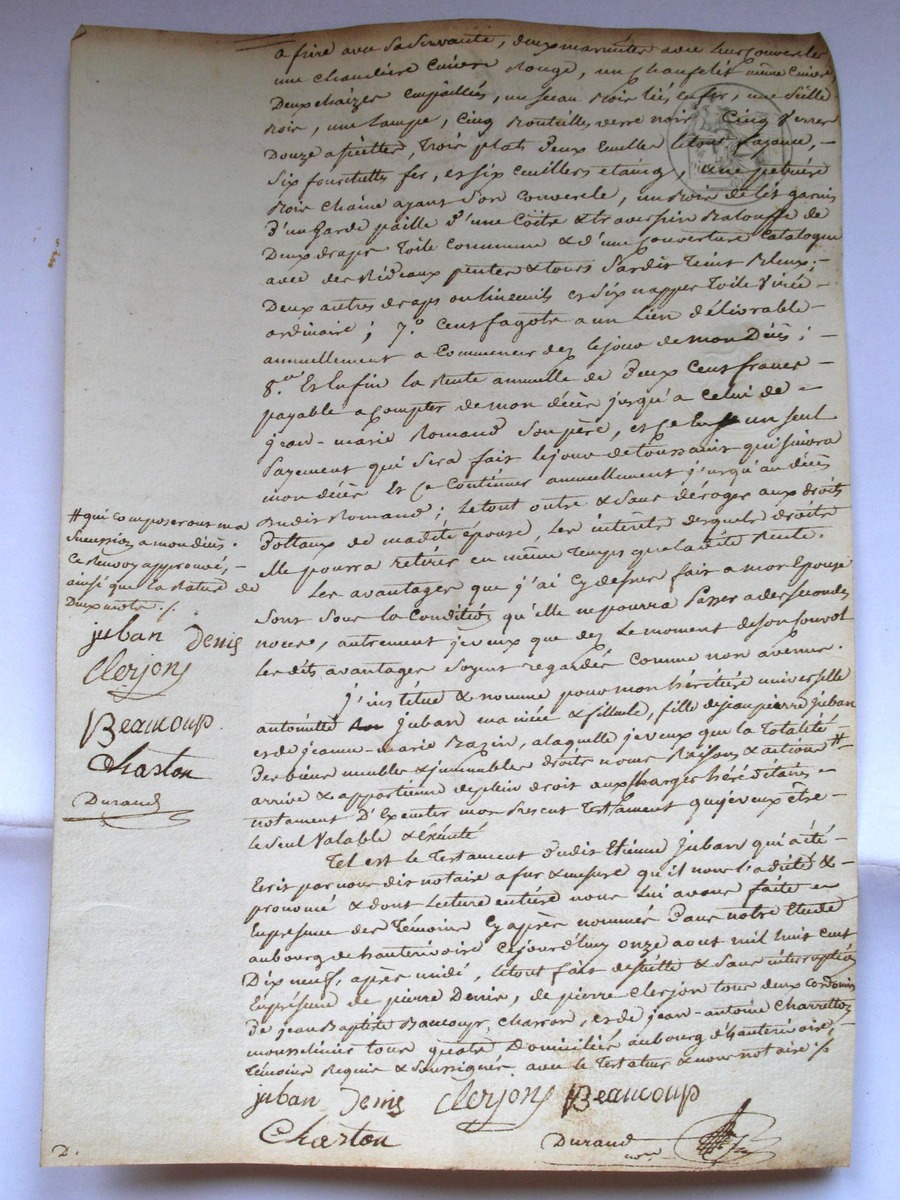 a frire avec sa servante, deux marmites avec leurs couvercles
une chaudière cuivre Rouge, un chauffelit même cuivre
Deux chaizes empaillées, un seau bois liés en fer, une seille
Bois, une Lampe, Cinq Bouteilles verre noir, Cinq verres
Douze assiettes, trois plats deux le tout fayance, -
Six fourchettes fer, et six cuillers etaing, une petrière
Bois chaine ayant son couvercle, un Bois de lit garni
D'un garde paille d'une Coëte & traversin Balouffe de
Deux draps Toile Commune & d'une couverture Catalogne
avec des Rideaux pentes & tours Sardis teint Bleux; -
Deux autres draps ou linceuils et six nappes Toile
ordinaire; 7.o Cent fagots a un Lien délivrable -
annuellement a Commencer dez le jour de mon Décès; -
8.o Et Enfin la Rente annuelle de Deux Cent francs -
payable a compter de mon décès jusqu'a celui de -
jean-marie Romand son père, et ce en un seul
payement qui sera fait le jour de toussaint qui suivra
mon décès Et ce Continuer annuellement jusqu'au décès
Dudit Romand; Le tout outre & sans déroger aux droits
Dottaux de madite épouse, Les intérêts desquels droits
elle pourra retirer en même temps que ladite Rente.
Les avantages que j'ai Cy dessus fait a mon Epouse
sont sous la Condition qu'elle ne pourra Passer a des secondes
noces, autrement je veux que dez Le moment de son convol
les dits avantages soyent regardés Comme non avenus.
J'institue & nomme pour mon héritière universelle
antoinette Juban ma nièce & filleule, fille de jean pierre Juban
et de jeanne-marie Bazin, a laquelle je veux que la Totalité -
Des biens meubles & immeubles droits noms Raisons & actions #
arrive & appartienne de plein droit aux charges héréditaires -
notament D'Executer mon present Testament que je veux être
le seul Valable & Exécuté
Tel est le Testament dudit Etienne Juban qui a été -
Ecrit par nous dit notaire a fur & mesure qu'il nous l'a dicté &
prononcé & dont lecture entière nous lui avons faite en
Enpresence des Témoins Cy après nommés Dans notre Etude
au bourg de hauterivoire Cejourd'huy onze aout mil huit cent
Dix neuf, après midi, le tout fait de suitte & sans interruption
Enprésence de pierre Denis, de pierre clerjon tous deux cordonniers
De jean Baptiste Baucoup, charron, et de jean-antoine Charretton
mousselinier tous quatre Domiciliés au bourg d'hauterivoire, -
Témoins Requis & Soussignés avec le Testateur & nous notaire ./.
juban Denis Clerjons Beaucoup
Charton
Durand
nore
# qui composeront ma
Succession a mon décès.
Ce Renvoy approuvé, -
ainsi que la Rature de
Deux mots ./.
juban Denis
Clerjons
Beaucoup
Charton
Durand
D.